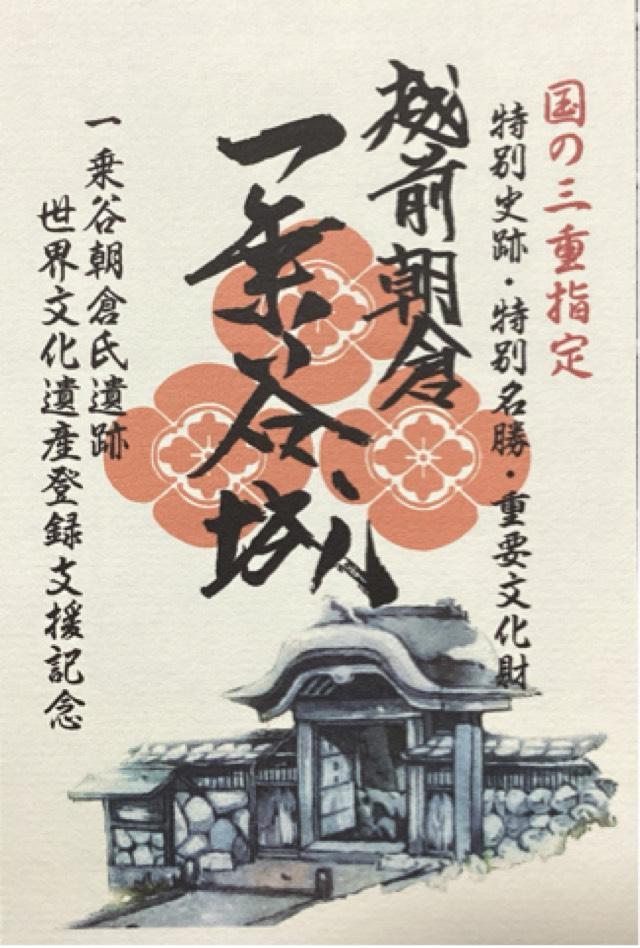 国の三重指定
特別史跡・特別名勝・重要文化財
越前朝倉
一乗谷城
一乗谷朝倉氏遺跡
世界文化遺産登録支援記念